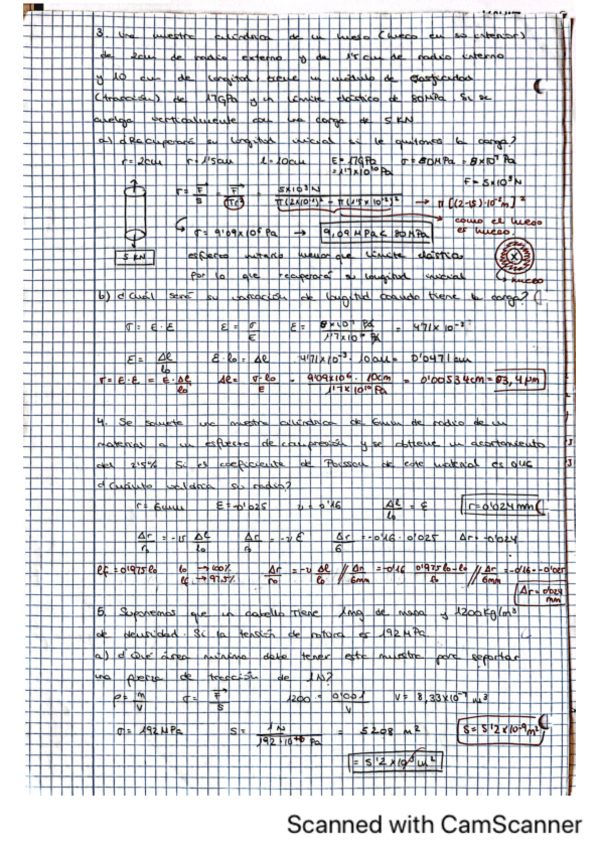 3. Una muestra cilíndrica de un hueso (hueco en su interior)
de 2cm de radio externo y de 1'5 cm de radio interno
y 10 cm de longitud, tiene un módulo de elasticidad
(tracción) de 17GPa y un límite elástico de 80MPa. Si se
cuelga verticalmente con una carga de 5 KN
a) ¿Recuperará su longitud inicial si le quitamos la carga?
r=2cm r=1'5cm l=10cm E=17GPa σ=80MPa=8×10⁷ Pa
=1'7×10¹⁰ Pa F=5×10³N
σ=9'09×10⁶ Pa → 9,09 MPa < 80MPa
→ π[(2-1,5)·10⁻²m]²
como el hueso
es hueco.
5 KN
esfuerzo menor que límite elástico
por lo que recuperará su longitud inicial
hueco
b) ¿Cuál será su variación de longitud cuando tiene la carga?
σ=E·ε ε=σ/E ε=8×10⁷ Pa/1'7×10¹⁰ Pa = 4'71×10⁻³
ε=Δl/l₀ ε·l₀=Δl 4'71×10⁻³·10cm=0'0471cm
σ=E·ε=E·Δl/l₀ Δl=σ·l₀/E = 9'09×10⁶·10cm/1'7×10¹⁰Pa = 0'00534cm=53,4μm
4. Se somete una muestra cilíndrica de 6mm de radio de un
material a un esfuerzo de compresión y se obtiene un acortamiento
del 2'5% Si el coeficiente de Poisson de este material es 0'16
¿Cuánto valdría su radio?
r=6mm ε=-0'025 ν=0'16 Δl/l₀=ε r=0'024mm
Δr/r₀=-ν Δl/l₀ Δr/r₀=-νε Δr/6=-0'16·0'025 Δr=-0'024
lf=0'975l₀ l₀→100% lf→97,5% Δr/r₀=-ν Δl/l₀ // Δr/6mm=-0'16 0'975l₀-l₀/l₀ // Δr/6mm=-0'16·-0'025
Δr=0'024 mm
5. Suponemos que un cabello tiene 1mg de masa y 1200kg/m³
de densidad. Si la tensión de rotura es 192MPa
a) ¿Qué área mínima debe tener esta muestra para soportar
una fuerza de tracción de 1N?
ρ=m/V σ=F/S 1200=0'001/V V=8,33×10⁻⁷ m³
σ=192MPa S=1N = 5208 m² S=5'2×10⁻⁹m²
Scanned with CamScanner